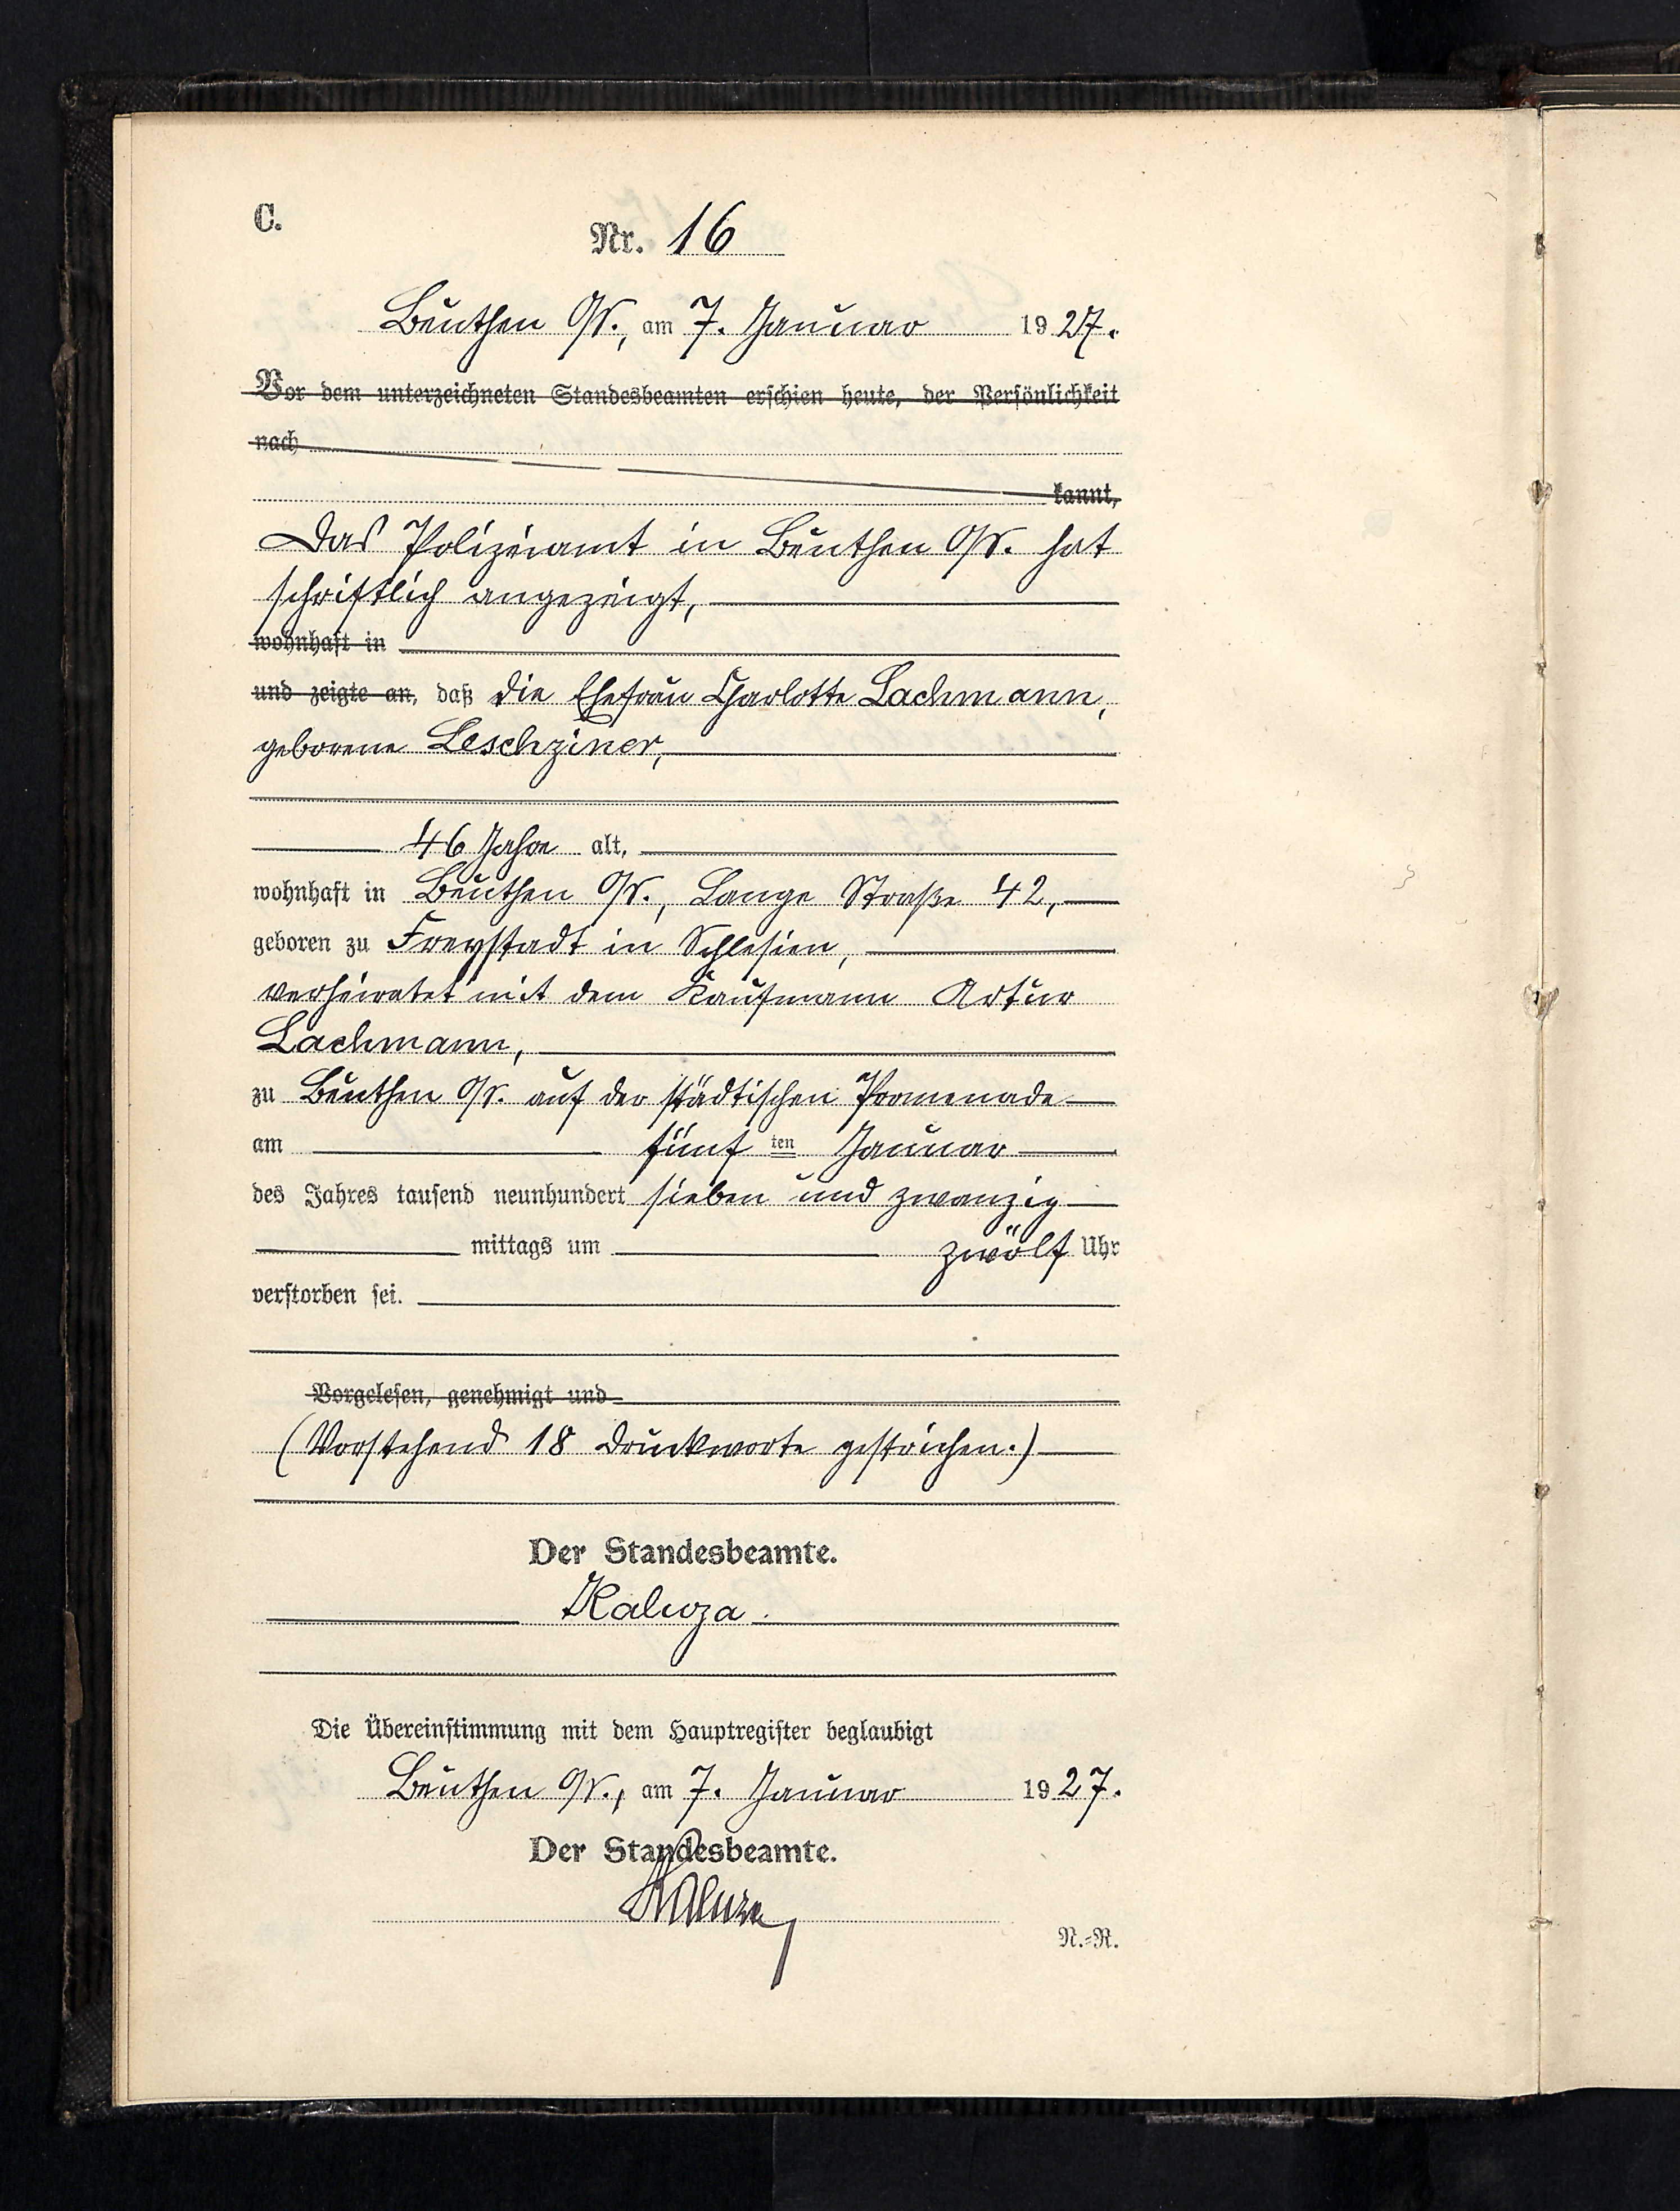 C.
Nr. 16
Beuthen O/S., am 7. Januar 1927.
Vor dem unterzeichneten Standesbeamten erschien heute, der Persönlichkeit
nach
kannt,
Das Polizeiamt in Beuthen O/S. hat
schriftlich angezeigt,
wohnhaft in
und zeigte an, daß die Ehefrau Charlotte Lachmann,
geborene Leschziner,
46 Jahre alt,
wohnhaft in Beuthen O/S., Lange Straße 42,
geboren zu Freystadt in Schlesien,
verheiratet mit dem Kaufmann Artur
Lachmann,
zu Beuthen O/S. auf der städtischen Promenade
am fünften Januar
des Jahres tausend neunhundert sieben und zwanzig
mittags um zwölf Uhr
verstorben sei.
Vorgelesen, genehmigt und
(Vorstehend 18 Druckworte gestrichen.)
Der Standesbeamte.
Kaluza.
Die Übereinstimmung mit dem Hauptregister beglaubigt
Beuthen O/S., am 7. Januar 1927.
Der Standesbeamte.
Kaluza
N.=R.